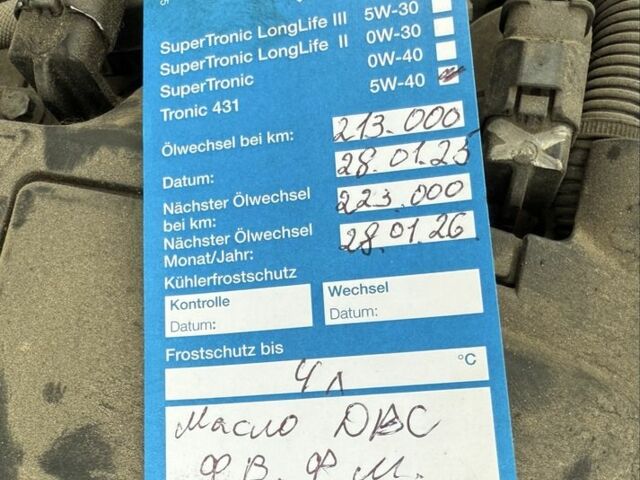 SuperTronic LongLife III 5W-30
SuperTronic LongLife II 0W-30
SuperTronic 0W-40
Tronic 431 5W-40
Ölwechsel bei km: 213.000
Datum: 28.01.25
Nächster Ölwechsel
bei km: 223.000
Nächster Ölwechsel
Monat/Jahr: 28.01.26
Kühlerfrostschutz
Kontrolle
Datum:
Wechsel
Datum:
Frostschutz bis
4 л °C
Масло ДВС
Ф.В. Ф.М.